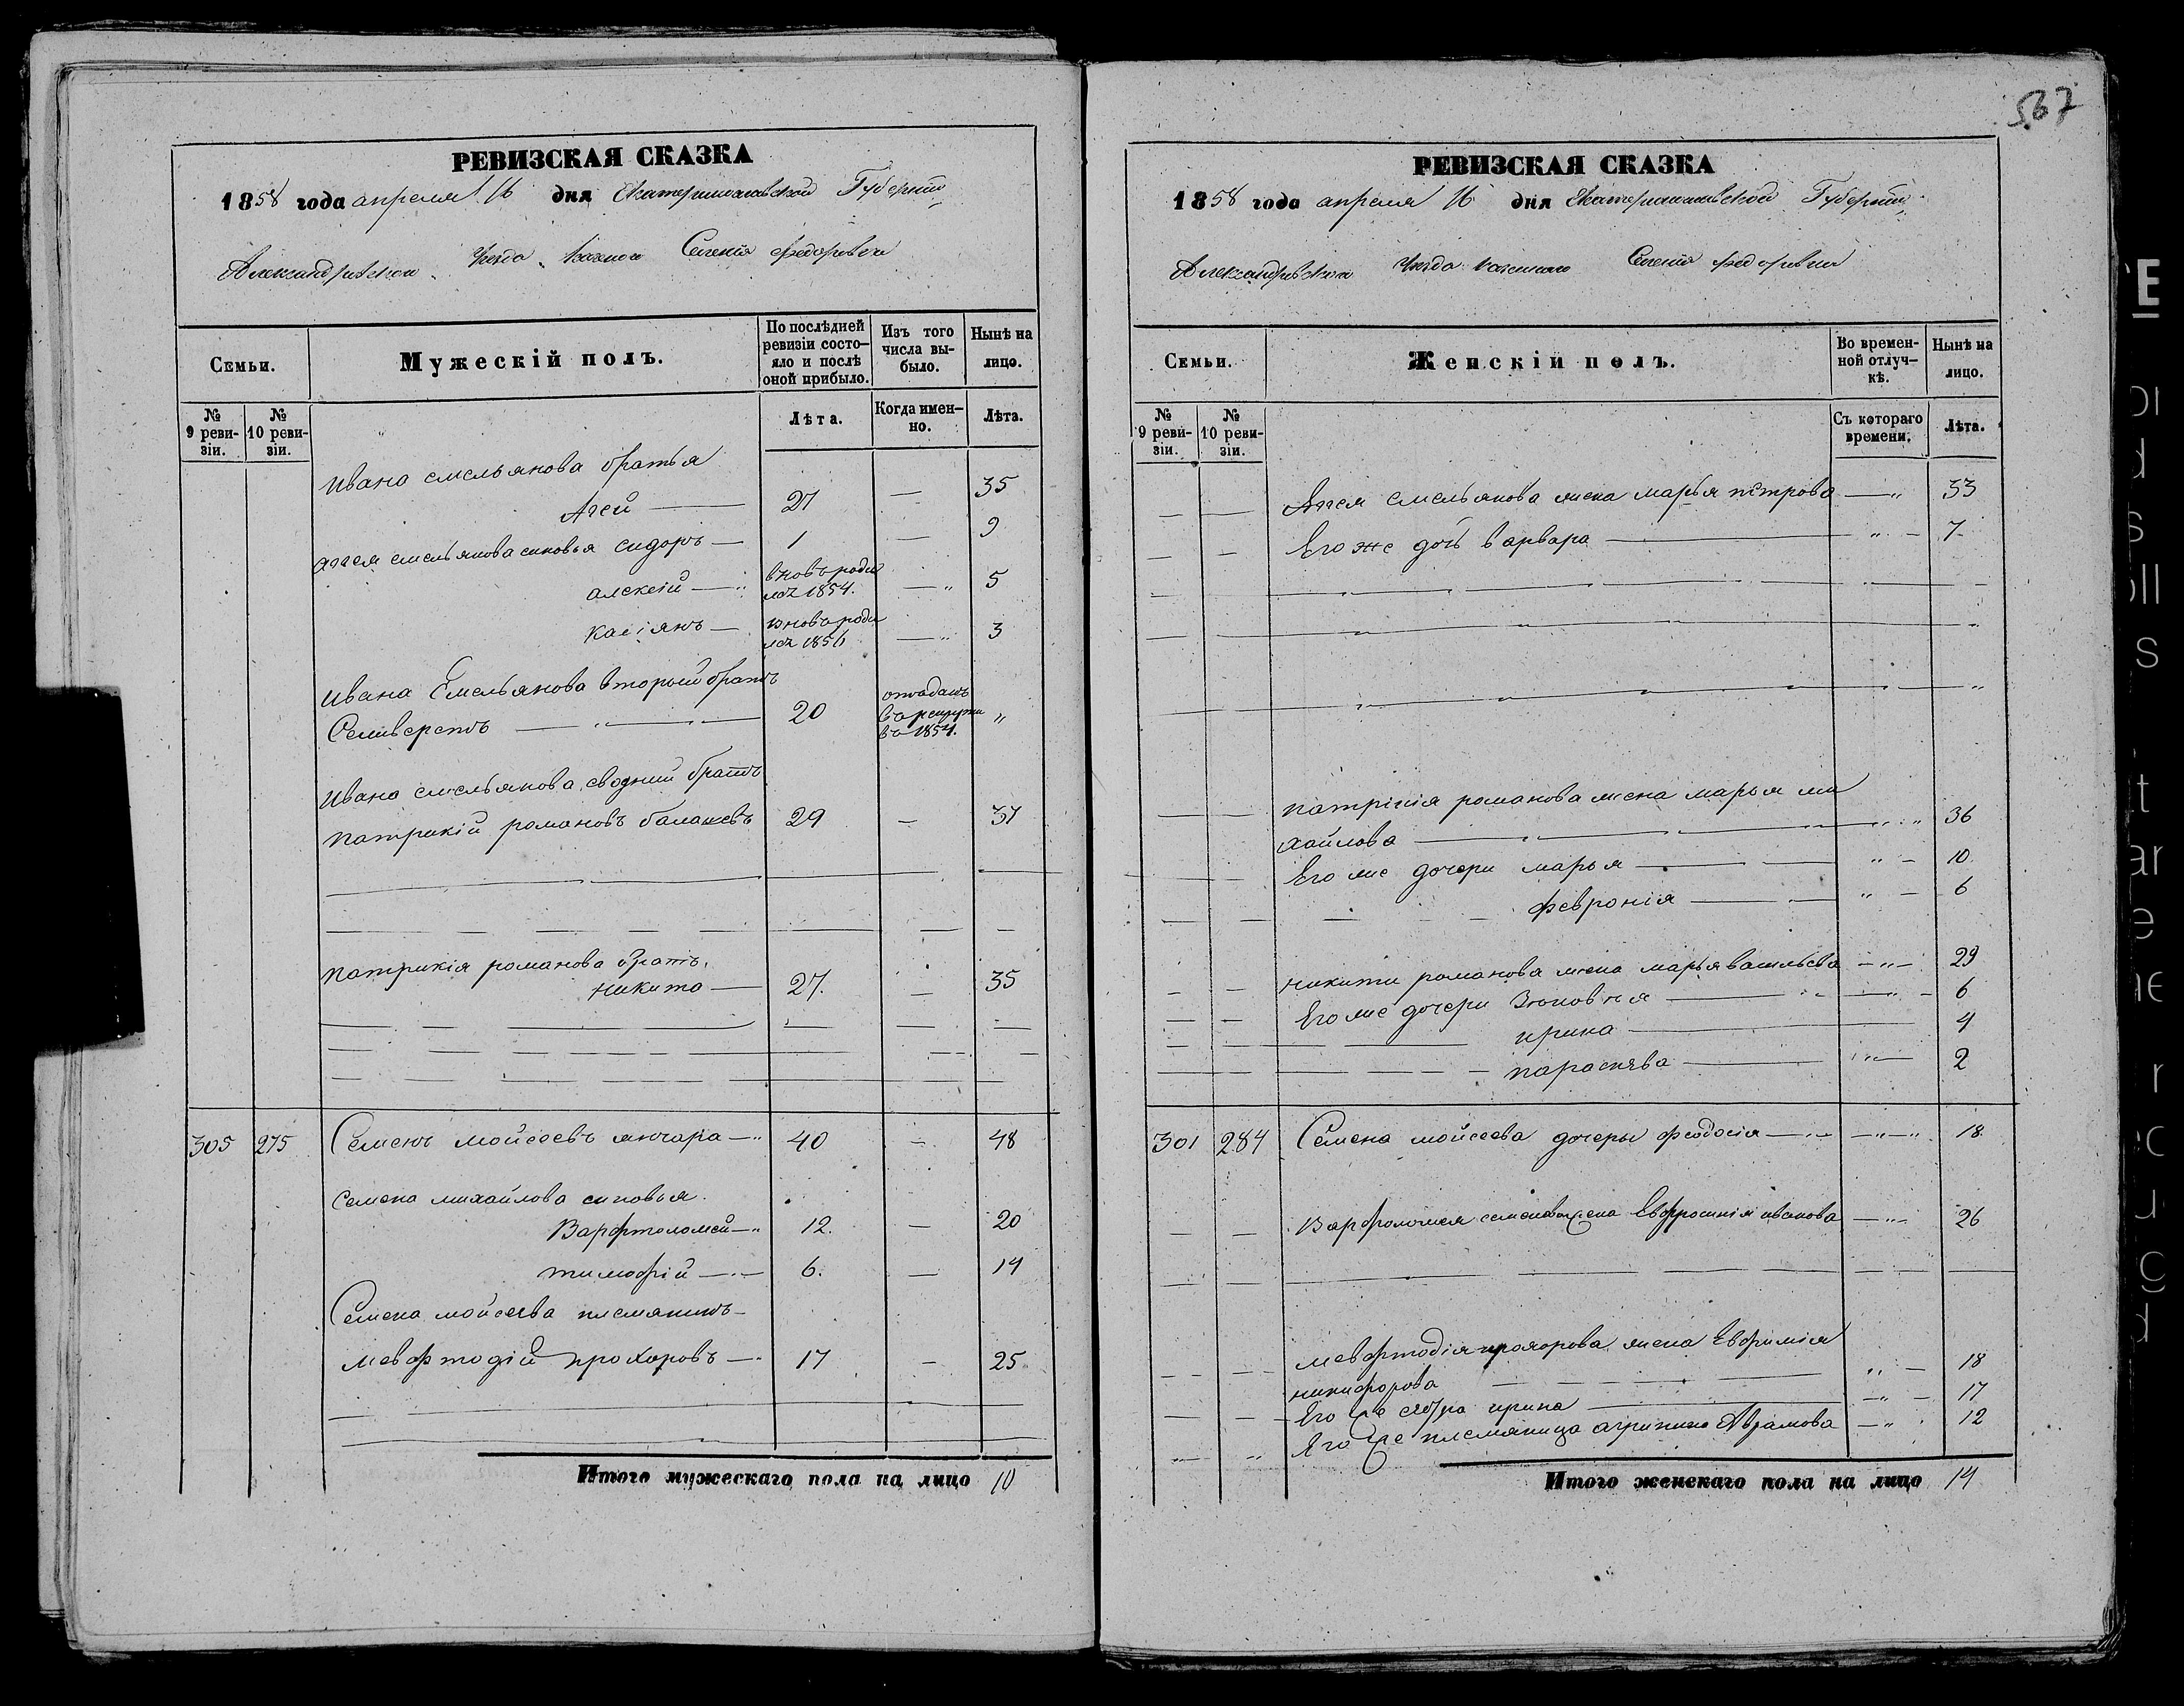 РЕВИЗСКАЯ СКАЗКА
1858 года апреля 16 дня Екатеринославской Губернии
Александровскаго Уезда Казеннаго Селения Федоровки
Семьи.
Мужескій полъ.
По послѣдней ревизіи состояло и послѣ оной прибыло.
Изъ того числа выбыло.
Нынѣ на лицо.
№ 9 ревизіи.
№ 10 ревизіи.
Лѣта.
Когда именно.
Лѣта.
Ивана емельянова братья
Агей — 27 — 35
Аггея емельянова сыновья сидоръ — 1 — 9
алексій — вновь роди
лся 1854. — 5
Касіянъ — вновь роди
лся 1856 — 3
Ивана Емельянова вторый братъ
Селиверстъ — 20 отдадан
в рекруты
въ 1854. "
Ивана емельянова сводний братъ
патрикій романовъ балашевъ 29 — 37
патрикія романова братъ,
никита — 27. — 35
305 275 Семенъ мойсеевъ янчара — 40 — 48
Семена михайлова сыновья.
Варфтоломей — 12. — 20
тимофій — 6. — 14
Семена мойсеева племянникъ —
Мевфтодій прохоровъ — 17 — 25
Итого мужескаго пола на лицо 10
567
РЕВИЗСКАЯ СКАЗКА
1858 года апреля 16 дня Екатеринославской Губернии
Александровскаго Уезда казеннаго Селения федоровки
Семьи.
Женскій полъ.
Во временной отлучкѣ.
Нынѣ на лицо.
№ 9 ревизіи.
№ 10 ревизіи.
Съ котораго времени.
Лѣта.
Аггея емельянова жена марья пѣтрова — " 33
Его же дочь варвара — " — 7
патрікія романова жена марья ми
хайлова — " 36
Его же дочери марья — " — 10
февронія — " — 6
никиты романова жена марья васильева — " — 29
Его же дочери Зѣновия — " — 6
ирина — 4
параскева — " — 2
301 284 Семена мойсеева дочеры феодосія — " — 18
Варфоломея семенова жена Евфросинія иванова — " — 26
Мевфтодія прохорова жена Евфимія
никифорова — " — 18
Его же сестра ирина — " — 17
Его же племяница агрипина Аврамова — " 12
Итого женскаго пола на лицо 14